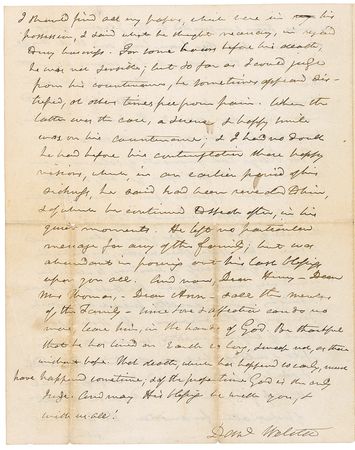 I should find all my papers, which were in his
possession, & said what he thought necessary, in regard
to my business. For some hours before his death,
he was not sensible; but so far as I could judge
from his countenance, he sometimes appeared dis-
tressed, at other times free from pain. When the
latter was the case, a serene & happy smile
was on his countenance; & I had no doubt
he had before his contemplation those happy
visions, which, in an earlier period of his
sickness, he said had been revealed to him,
& which he continued to speak often, in his
quiet moments. He left no particular
message for any of the family; but was
abundant in pouring out his last blessing
upon you all. And now, Dear Henry - Dear
Mrs Thomas, - Dear Ann - & all the members
of the Family - love & affection can do no
more leave him, in the hands of God. Be thankful
that he has lived on Earth so long, & weep not, as those
without hope. That death, which has happened so early, must
have happened sometime, & of the proper time God is the only
Judge. And may His blessing be with you, &
with us all!
Danl Webster